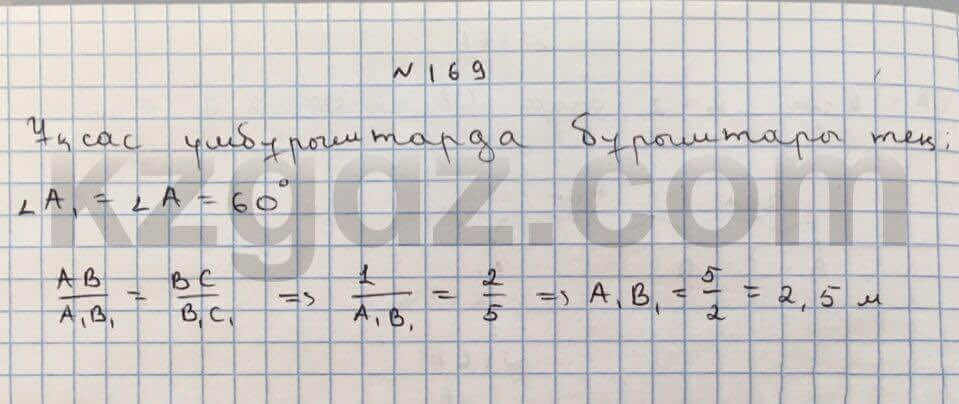 N 169
Ұқсас үшбұрыштарда бұрыштары тең:
∠A₁ = ∠A = 60°
AB/A₁B₁ = BC/B₁C₁ => 1/A₁B₁ = 2/5 => A₁B₁ = 5/2 = 2,5 м
kzgdz.com